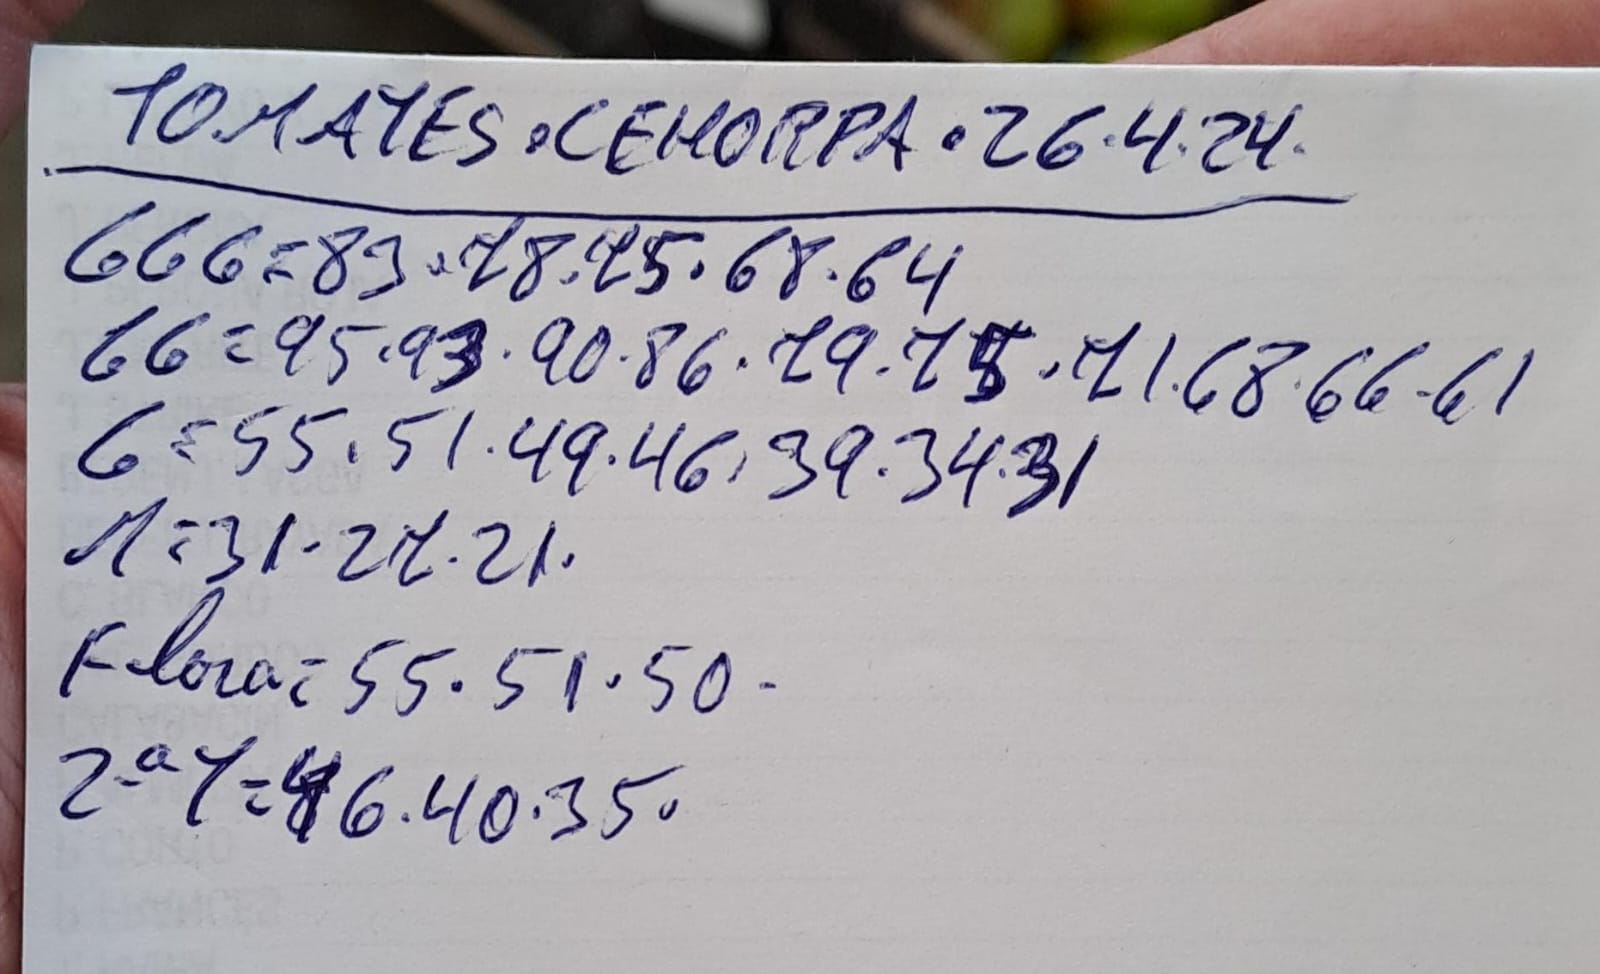 TOMATES.CEHORPA.26.4.24.
GGG=83.78.75.68.64
GG=95.93.90.86.79.75.71.68.66.61
G=55.51.49.46.39.34.31
M=31.27.21.
Flora=55.51.50-
2-ªT=46.40.35.